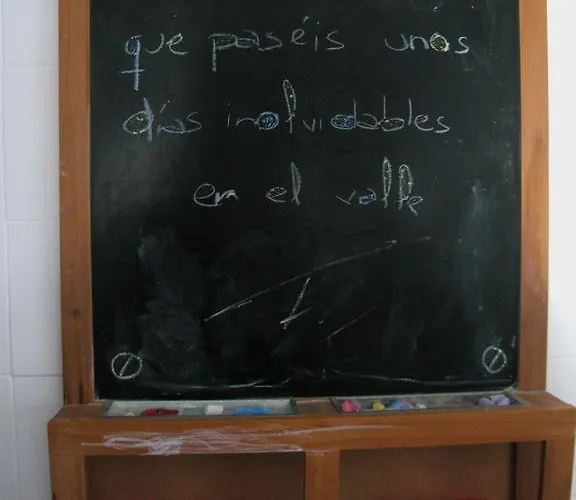 que paséis unos
días inolvidables
en el valle